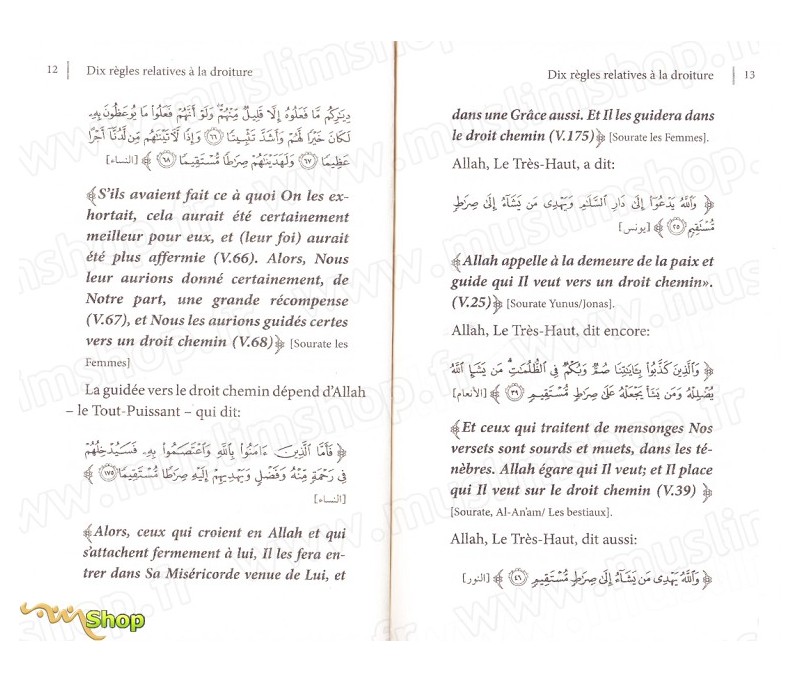 12 | Dix règles relatives à la droiture
دِيَٰرِكُم مَّا فَعَلُوهُ إِلَّا قَلِيلٌ مِّنْهُمْ وَلَوْ أَنَّهُمْ فَعَلُوا۟ مَا يُوعَظُونَ بِهِۦ
لَكَانَ خَيْرًا لَّهُمْ وَأَشَدَّ تَثْبِيتًا ٦٦ وَإِذًا لَّءَاتَيْنَٰهُم مِّن لَّدُنَّآ أَجْرًا
عَظِيمًا ٦٧ وَلَهَدَيْنَٰهُمْ صِرَٰطًا مُّسْتَقِيمًا ٦٨ ﴾ [النساء]
﴾S'ils avaient fait ce à quoi On les ex-
hortait, cela aurait été certainement
meilleur pour eux, et (leur foi) aurait
été plus affermie (V.66). Alors, Nous
leur aurions donné certainement, de
Notre part, une grande récompense
(V.67), et Nous les aurions guidés certes
vers un droit chemin (V.68)﴿ [Sourate les
Femmes]
La guidée vers le droit chemin dépend d'Allah
– le Tout-Puissant – qui dit:
﴿ فَأَمَّا ٱلَّذِينَ ءَامَنُوا۟ بِٱللَّهِ وَٱعْتَصَمُوا۟ بِهِۦ فَسَيُدْخِلُهُمْ
فِى رَحْمَةٍ مِّنْهُ وَفَضْلٍ وَيَهْدِيهِمْ إِلَيْهِ صِرَٰطًا مُّسْتَقِيمًا ١٧٥ ﴾
[النساء]
﴾Alors, ceux qui croient en Allah et qui
s'attachent fermement à lui, Il les fera en-
trer dans Sa Miséricorde venue de Lui, et
Dix règles relatives à la droiture | 13
dans une Grâce aussi. Et Il les guidera dans
le droit chemin (V.175)﴿ [Sourate les Femmes].
Allah, Le Très-Haut, a dit:
﴿ وَٱللَّهُ يَدْعُوٓا۟ إِلَىٰ دَارِ ٱلسَّلَٰمِ وَيَهْدِى مَن يَشَآءُ إِلَىٰ صِرَٰطٍ
مُّسْتَقِيمٍ ٢٥ ﴾ [يونس]
﴾Allah appelle à la demeure de la paix et
guide qui Il veut vers un droit chemin».
(V.25)﴿ [Sourate Yunus/Jonas].
Allah, Le Très-Haut, dit encore:
﴿ وَٱلَّذِينَ كَذَّبُوا۟ بِـَٔايَٰتِنَا صُمٌّ وَبُكْمٌ فِى ٱلظُّلُمَٰتِ مَن يَشَإِ ٱللَّهُ
يُضْلِلْهُ وَمَن يَشَأْ يَجْعَلْهُ عَلَىٰ صِرَٰطٍ مُّسْتَقِيمٍ ٣٩ ﴾ [الأنعام]
﴾Et ceux qui traitent de mensonges Nos
versets sont sourds et muets, dans les té-
nèbres. Allah égare qui Il veut; et Il place
qui Il veut sur le droit chemin (V.39) ﴿
[Sourate, Al-An'am/ Les bestiaux].
Allah, Le Très-Haut, dit aussi:
﴿ وَٱللَّهُ يَهْدِى مَن يَشَآءُ إِلَىٰ صِرَٰطٍ مُّسْتَقِيمٍ ٤٦ ﴾ [النور]
Shop
www.muslimshop.fr